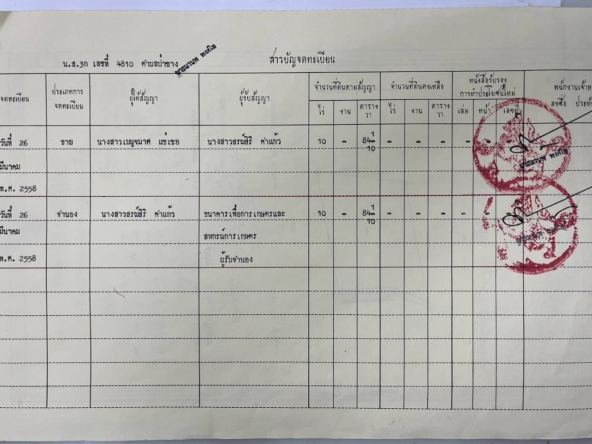 สารบัญจดทะเบียน
น.ส.3ก เลขที่ 4810 ตำบลป่าซาง
จดทะเบียน ประเภทการ ผู้ให้สัญญา ผู้รับสัญญา จำนวนที่ดินตามสัญญา จำนวนที่ดินคงเหลือ หนังสือรับรอง พนักงานเจ้าห
จดทะเบียน การทำประโยชน์ใหม่ ลงชื่อ ประทับ
ไร่ งาน ตาราง ไร่ งาน ตาราง เล่ม หน้า เลขที่
วา วา
วันที่ 26 ขาย นางสาวเบญจมาศ แซ่เซอ นางสาวธรณ์สิริ คำแก้ว 10 - 84 1/10 - - - - - -
มีนาคม
พ.ศ. 2558
วันที่ 26 จำนอง นางสาวธรณ์สิริ คำแก้ว ธนาคารเพื่อการเกษตรและ 10 - 84 1/10 - - - - - -
มีนาคม สหกรณ์การเกษตร
พ.ศ. 2558 ผู้รับจำนอง